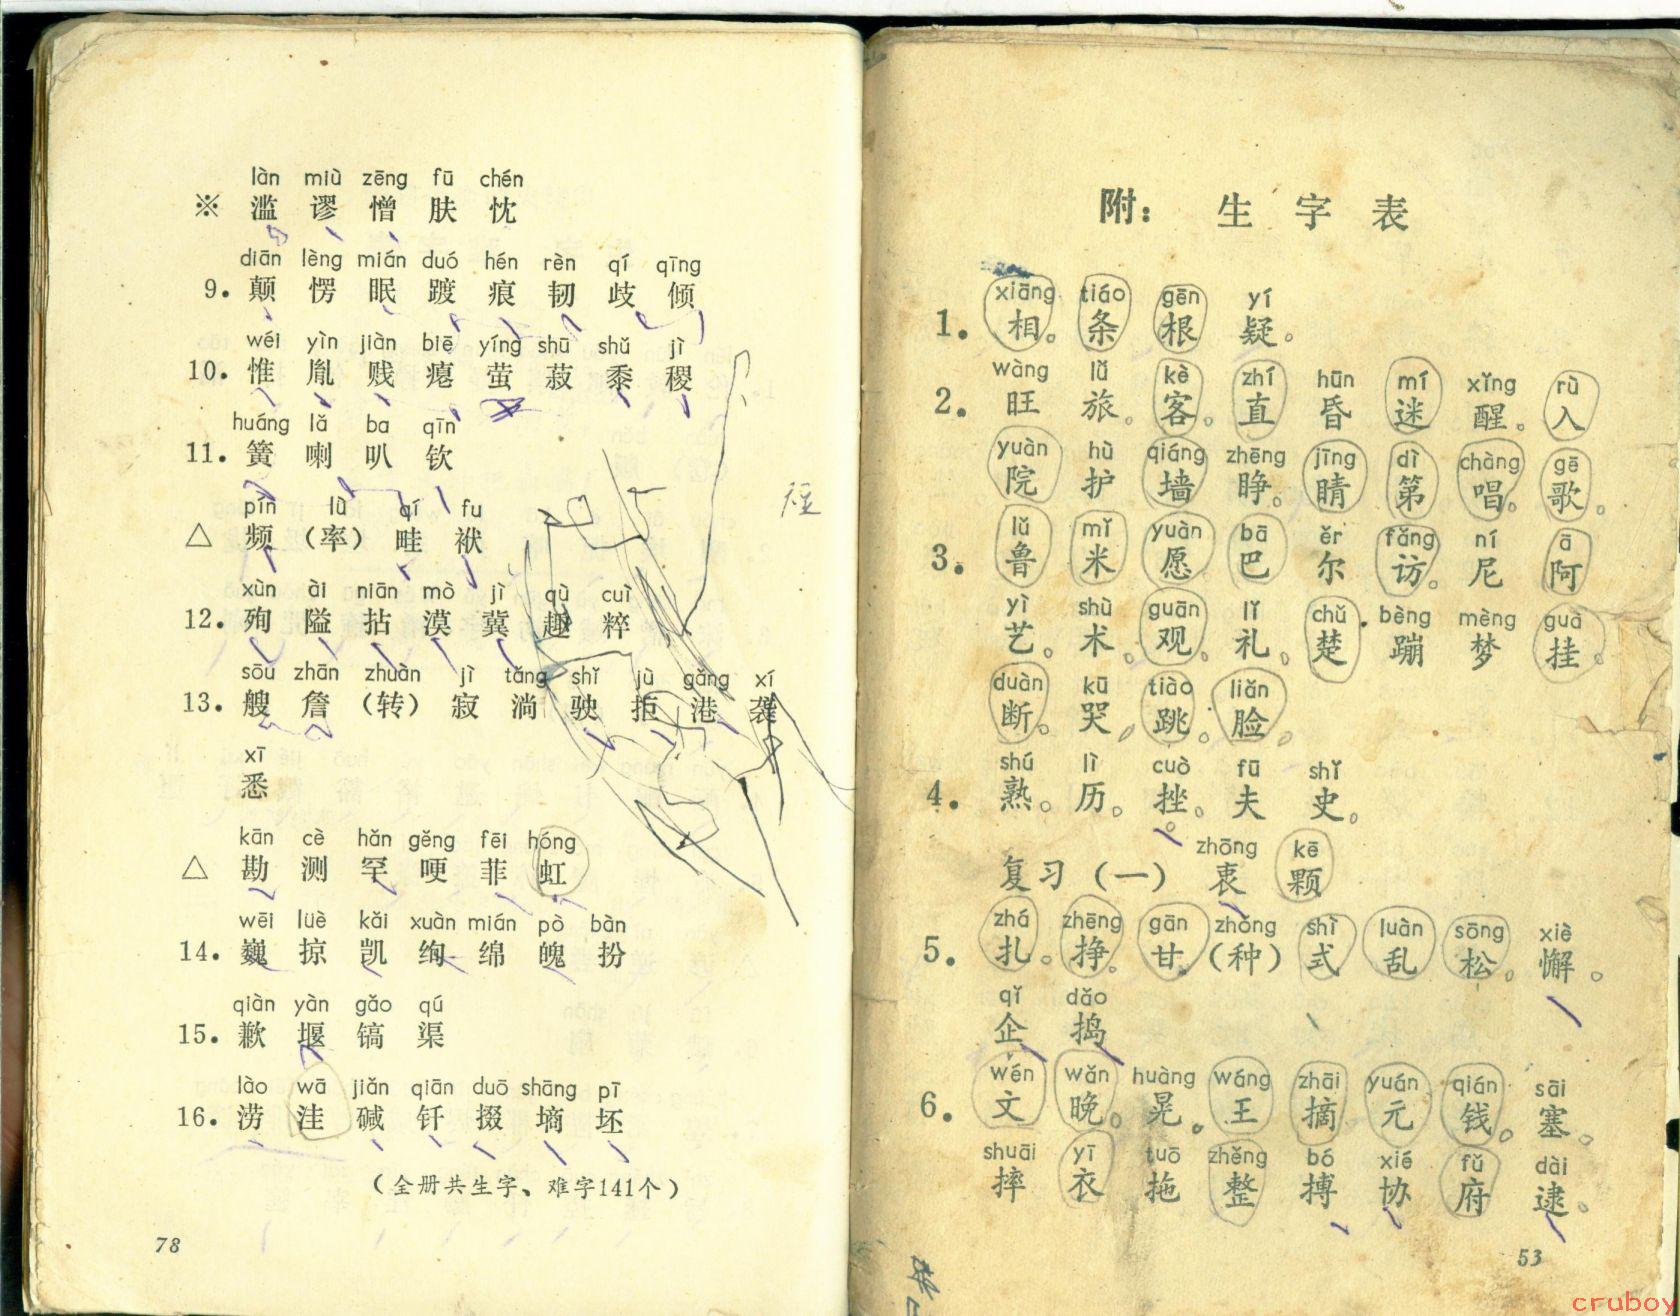 làn miù zēng fū chén
※ 滥 谬 憎 肤 忱
diān lèng mián duó hén rèn qí qīng
9. 颠 愣 眠 踱 痕 韧 歧 倾
wéi yìn jiàn biē yíng shū shǔ jì
10. 惟 胤 贱 瘪 萤 菽 黍 稷
huáng lǎ ba qīn
11. 簧 喇 叭 钦
pín lǜ qí fu
△ 频 （率） 畦 袱
xùn ài niān mò jì qù cuì
12. 殉 隘 拈 漠 冀 趣 粹
sōu zhān zhuàn jì tǎng shǐ jù gǎng xí
13. 艘 詹 （转） 寂 淌 驶 拒 港 袭
xī
悉
kān cè hǎn gěng fēi hóng
△ 勘 测 罕 哽 菲 虹
wēi lüè kǎi xuàn mián pò bàn
14. 巍 掠 凯 绚 绵 魄 扮
qiàn yàn gǎo qú
15. 歉 堰 镐 渠
lào wā jiǎn qiān duō shāng pī
16. 涝 洼 碱 钎 掇 墒 坯
（全册共生字、难字141个）
78
附： 生 字 表
xiāng tiáo gēn yí
1. 相 条 根 疑
wàng lǚ kè zhí hūn mí xǐng rù
2. 旺 旅 客 直 昏 迷 醒 入
yuàn hù qiáng zhēng jīng dì chàng gē
院 护 墙 睁 睛 第 唱 歌
lǔ mǐ yuàn bā ěr fǎng ní ā
3. 鲁 米 愿 巴 尔 访 尼 阿
yì shù guān lǐ chǔ bèng mèng guà
艺 术 观 礼 楚 蹦 梦 挂
duàn kū tiào liǎn
断 哭 跳 脸
shú lì cuò fū shǐ
4. 熟 历 挫 夫 史
zhōng kē
复习（一） 衷 颗
zhá zhēng gān zhǒng shì luàn sōng xiè
5. 扎 挣 甘 （种） 式 乱 松 懈
qǐ dǎo
企 捣
wén wǎn huàng wáng zhāi yuán qián sāi
6. 文 晚 晃 王 摘 元 钱 塞
shuāi yī tuō zhěng bó xié fǔ dài
摔 衣 拖 整 搏 协 府 逮
53
cruboy